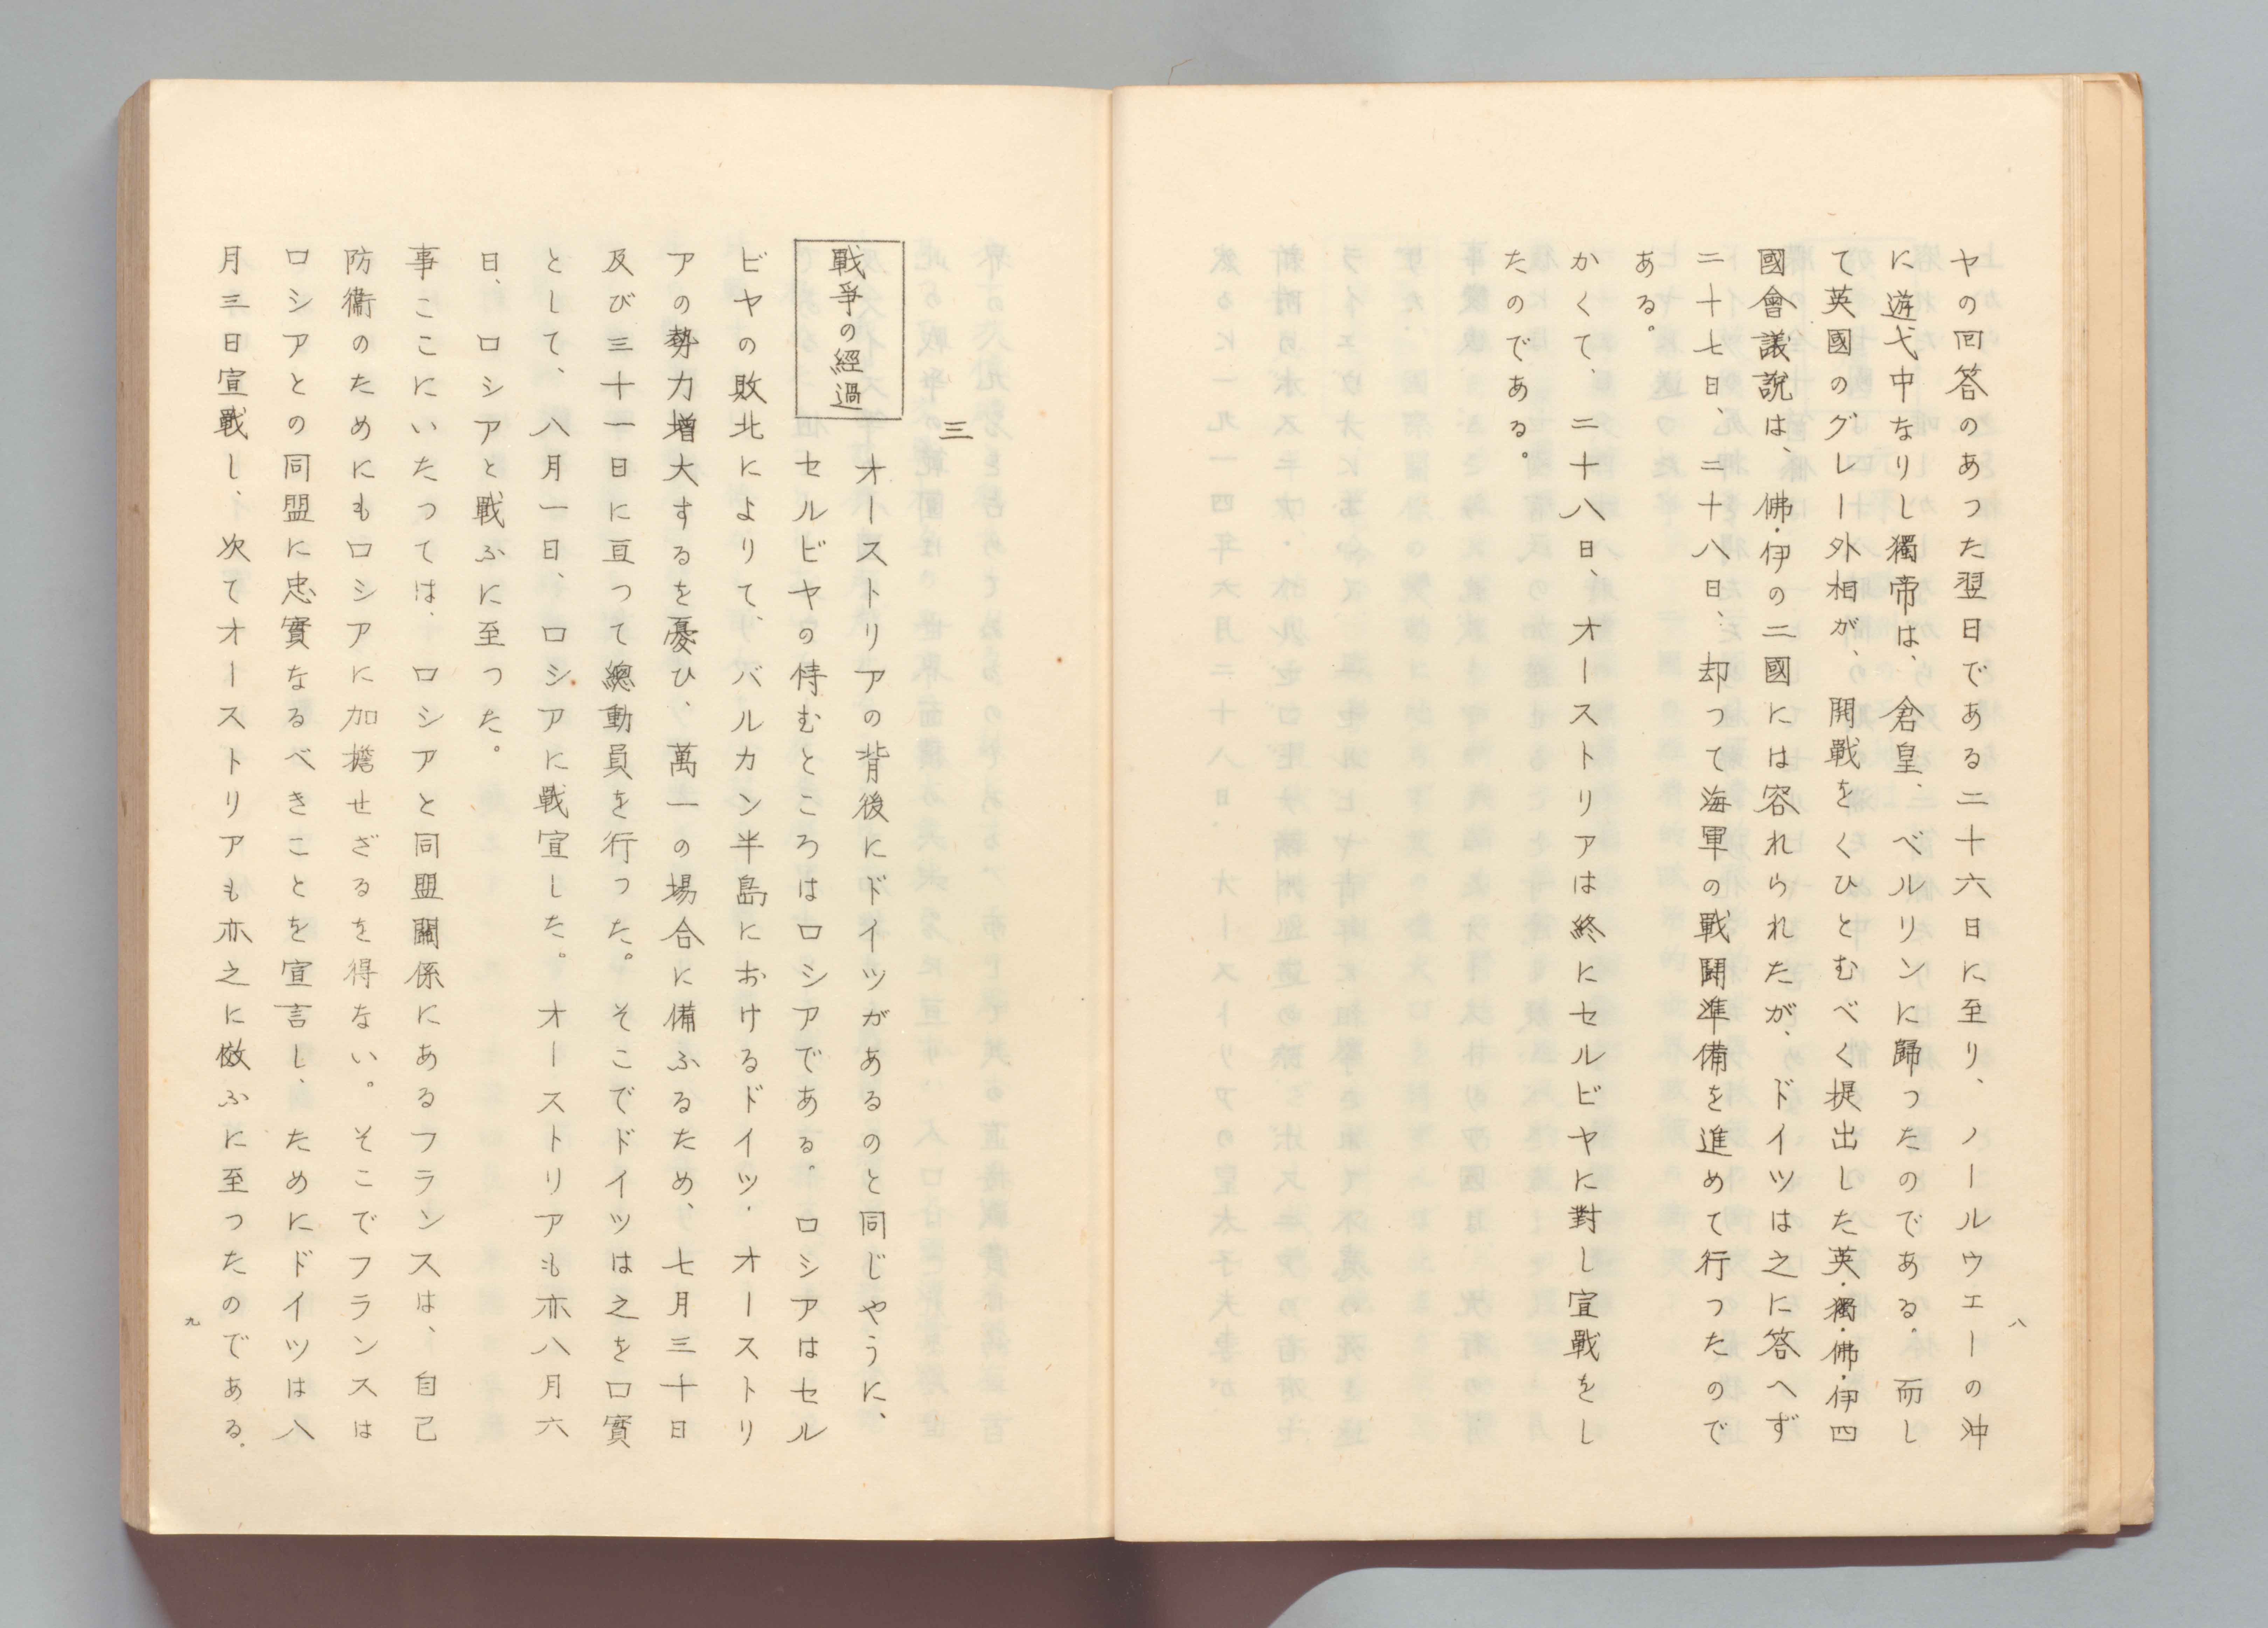 八
ヤの回答のあつた翌日である二十六日に至り、ノールウエーの沖
に遊弋中なりし獨帝は、倉皇、ベルリンに歸つたのである。而し
て英國のグレー外相が、開戰をくひとむべく提出した英・獨・佛・伊四
國會議說は、佛・伊の二國には容れられたが、ドイツは之に答へず
二十七日、二十八日、却つて海軍の戰鬪準備を進めて行つたので
ある。
かくて、二十八日、オーストリアは終にセルビヤに對し宣戰をし
たのである。
三
戰爭の經過
オーストリアの背後にドイツがあるのと同じやうに、
セルビヤの恃むところはロシアである。ロシアはセル
ビヤの敗北によりて、バルカン半島におけるドイツ・オーストリ
アの勢力增大するを憂ひ、萬一の場合に備ふるため、七月三十日
及び三十一日に亘つて總動員を行つた。そこでドイツは之を口實
として、八月一日、ロシアに戰宣した。オーストリアも亦八月六
日、ロシアと戰ふに至つた。
事ここにいたつては、ロシアと同盟關係にあるフランスは、自己
防衞のためにもロシアに加擔せざるを得ない。そこでフランスは
ロシアとの同盟に忠實なるべきことを宣言し、ためにドイツは八
月三日宣戰し、次てオーストリアも亦之に倣ふに至つたのである。
九